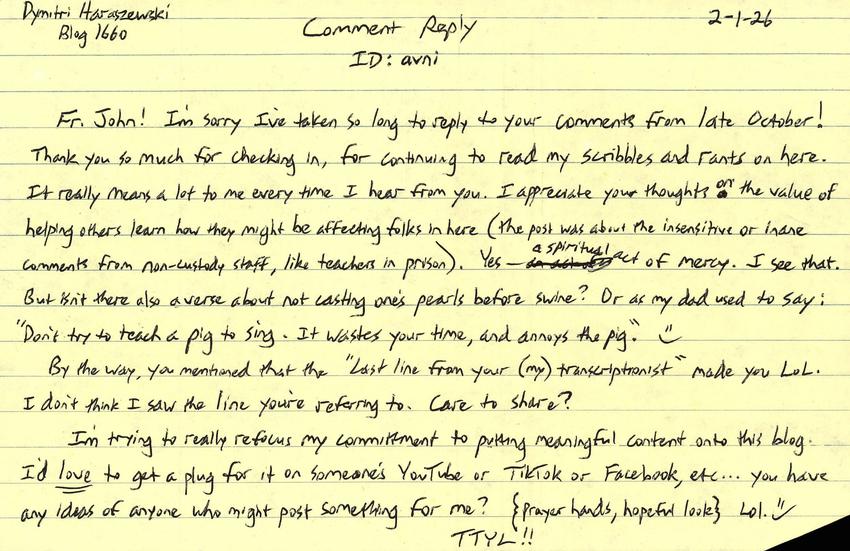 Dymitri Haraszewski
Blog 1660
Comment Reply
2-1-26
ID: avni
Fr. John! I'm sorry I've taken so long to reply to your comments from late October!
Thank you so much for checking in, for continuing to read my scribbles and rants on here.
It really means a lot to me every time I hear from you. I appreciate your thoughts on the value of
helping others learn how they might be affecting folks in here (the post was about the insensitive or inane
comments from non-custody staff, like teachers in prison). Yes — a spiritual act of mercy. I see that.
But isn't there also a verse about not casting one's pearls before swine? Or as my dad used to say:
"Don't try to teach a pig to sing. It wastes your time, and annoys the pig."
By the way, you mentioned that the "Last line from your (my) transcriptionist" made you LoL.
I don't think I saw the line you're referring to. Care to share?
I'm trying to really refocus my committment to putting meaningful content onto this blog.
I'd love to get a plug for it on someone's YouTube or TikTok or Facebook, etc... you have
any ideas of anyone who might post something for me? {prayer hands, hopeful look} Lol.
TTYL!!